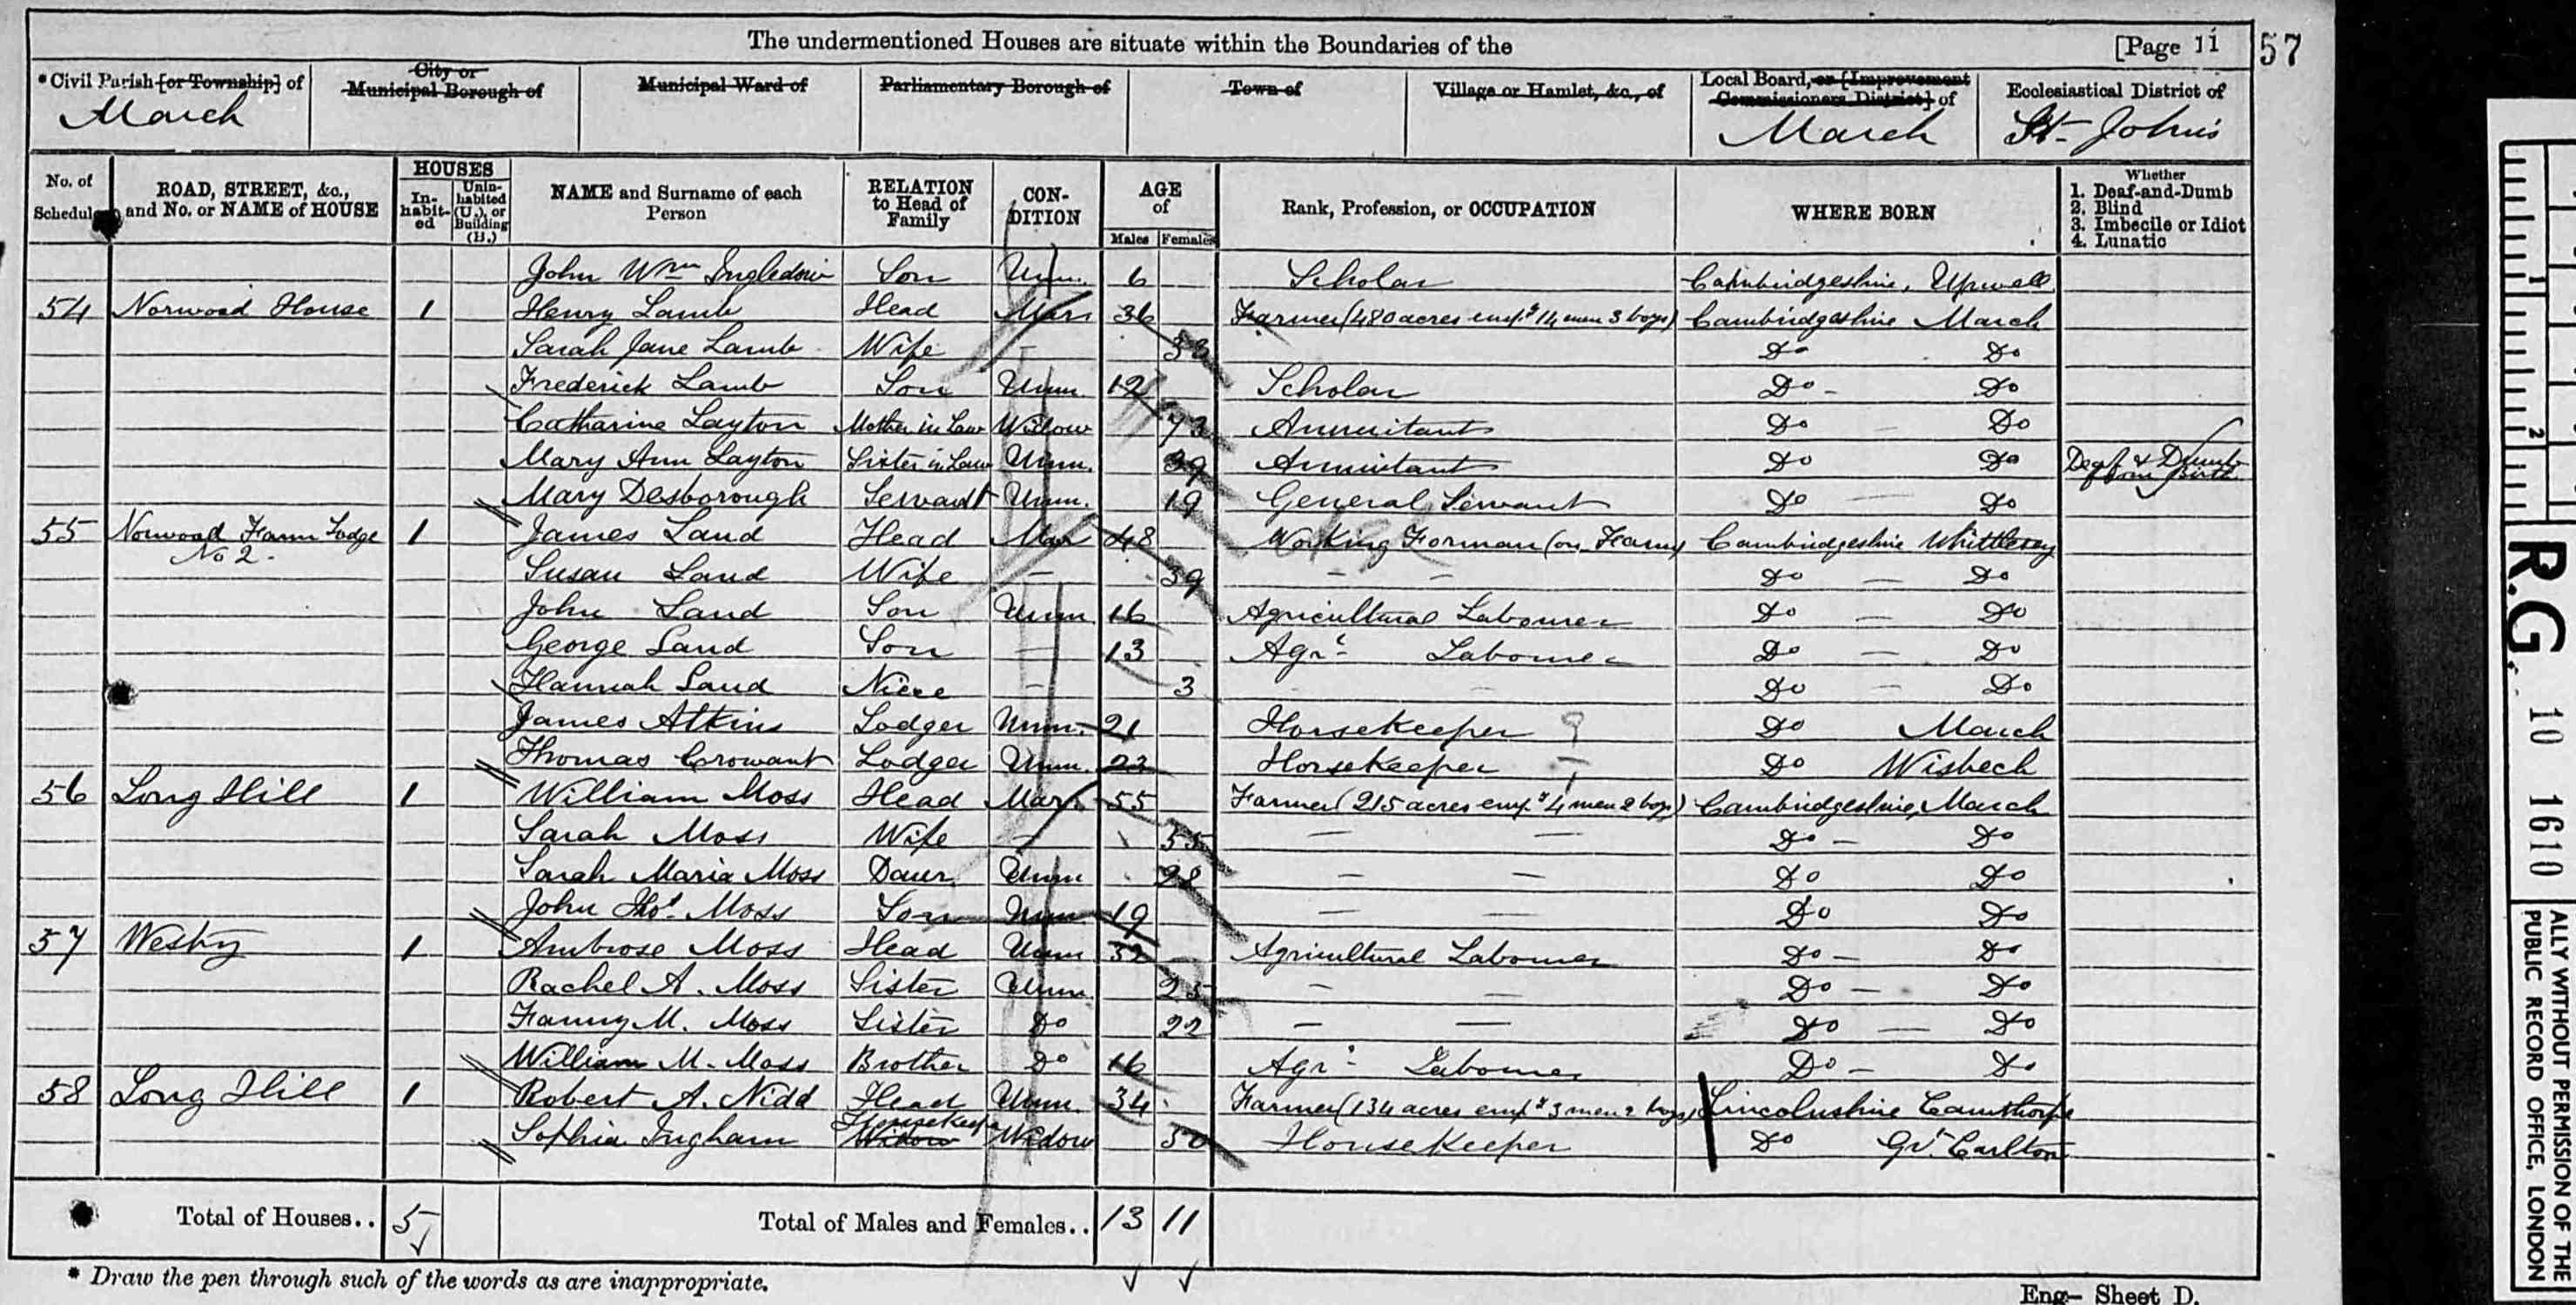 The undermentioned Houses are situate within the Boundaries of the [Page 11 57
*Civil Parish [or Township] of City or Municipal Borough of Municipal Ward of Parliamentary Borough of Town of Village or Hamlet, &c., of Local Board, or [Improvement Commissioners District] of Ecclesiastical District of
March March St. John's
No. of Schedule ROAD, STREET, &c., and No. or NAME of HOUSE HOUSES Inhabited Uninhabited (U.), or Building (B.) NAME and Surname of each Person RELATION to Head of Family CONDITION AGE of Males Females Rank, Profession, or OCCUPATION WHERE BORN Whether 1. Deaf-and-Dumb 2. Blind 3. Imbecile or Idiot 4. Lunatic
John Wm Ingledow Son Unm. 6 Scholar Cambridgeshire, Upwell
54 Norwood House 1 Henry Lamb Head Mar 36 Farmer (480 acres emp.g 14 men 3 boys) Cambridgeshire March
Sarah Jane Lamb Wife - Do Do
Frederick Lamb Son Unm. 12 Scholar Do - Do
Catharine Layton Mother in Law Widow 73 Annuitant Do - Do
Mary Ann Layton Sister in Law Unm. 39 Annuitant Do Do Deaf & Dumb from Birth
Mary Desborough Servant Unm. 19 General Servant Do - Do
55 Norwood Farm Lodge No 2. 1 James Land Head Mar 48 Working Forman (on Farm) Cambridgeshire Whittlesey
Susan Land Wife - 39 - - Do - Do
John Land Son Unm 16 Agricultural Labourer Do - Do
George Land Son - 13 Agr.l Labourer Do - Do
Hannah Land Niece - 3 - Do - Do
James Atkins Lodger Unm. 21 Horsekeeper Do March
Thomas Crowant Lodger Unm. 22 Horsekeeper Do Wisbech
56 Long Hill 1 William Moss Head Mar. 55 Farmer (215 acres emp.g 4 men 2 boys) Cambridgeshire, March
Sarah Moss Wife - 55 - - Do - Do
Sarah Maria Moss Daur. Unm 28 - - Do Do
John Thos. Moss Son Unm 19 - - Do Do
57 Westry 1 Ambrose Moss Head Unm 32 Agricultural Labourer Do - Do
Rachel A. Moss Sister Unm. 25 - - Do - Do
Fanny M. Moss Sister Do 22 - - Do - Do
William M. Moss Brother Do 16 Agr.l Labourer Do - Do
58 Long Hill 1 Robert A. Nidd Head Unm. 34 Farmer (134 acres emp.g 3 men 2 boys) Lincolnshire Cawthorpe
Sophia Ingham Housekeeper Widow Widow 50 Housekeeper Do Gt. Carlton
Total of Houses.. 5 Total of Males and Females.. 13 11
* Draw the pen through such of the words as are inappropriate.
Eng— Sheet D.
R.G. 10 1610
ALLY WITHOUT PERMISSION OF THE
PUBLIC RECORD OFFICE, LONDON
1
2